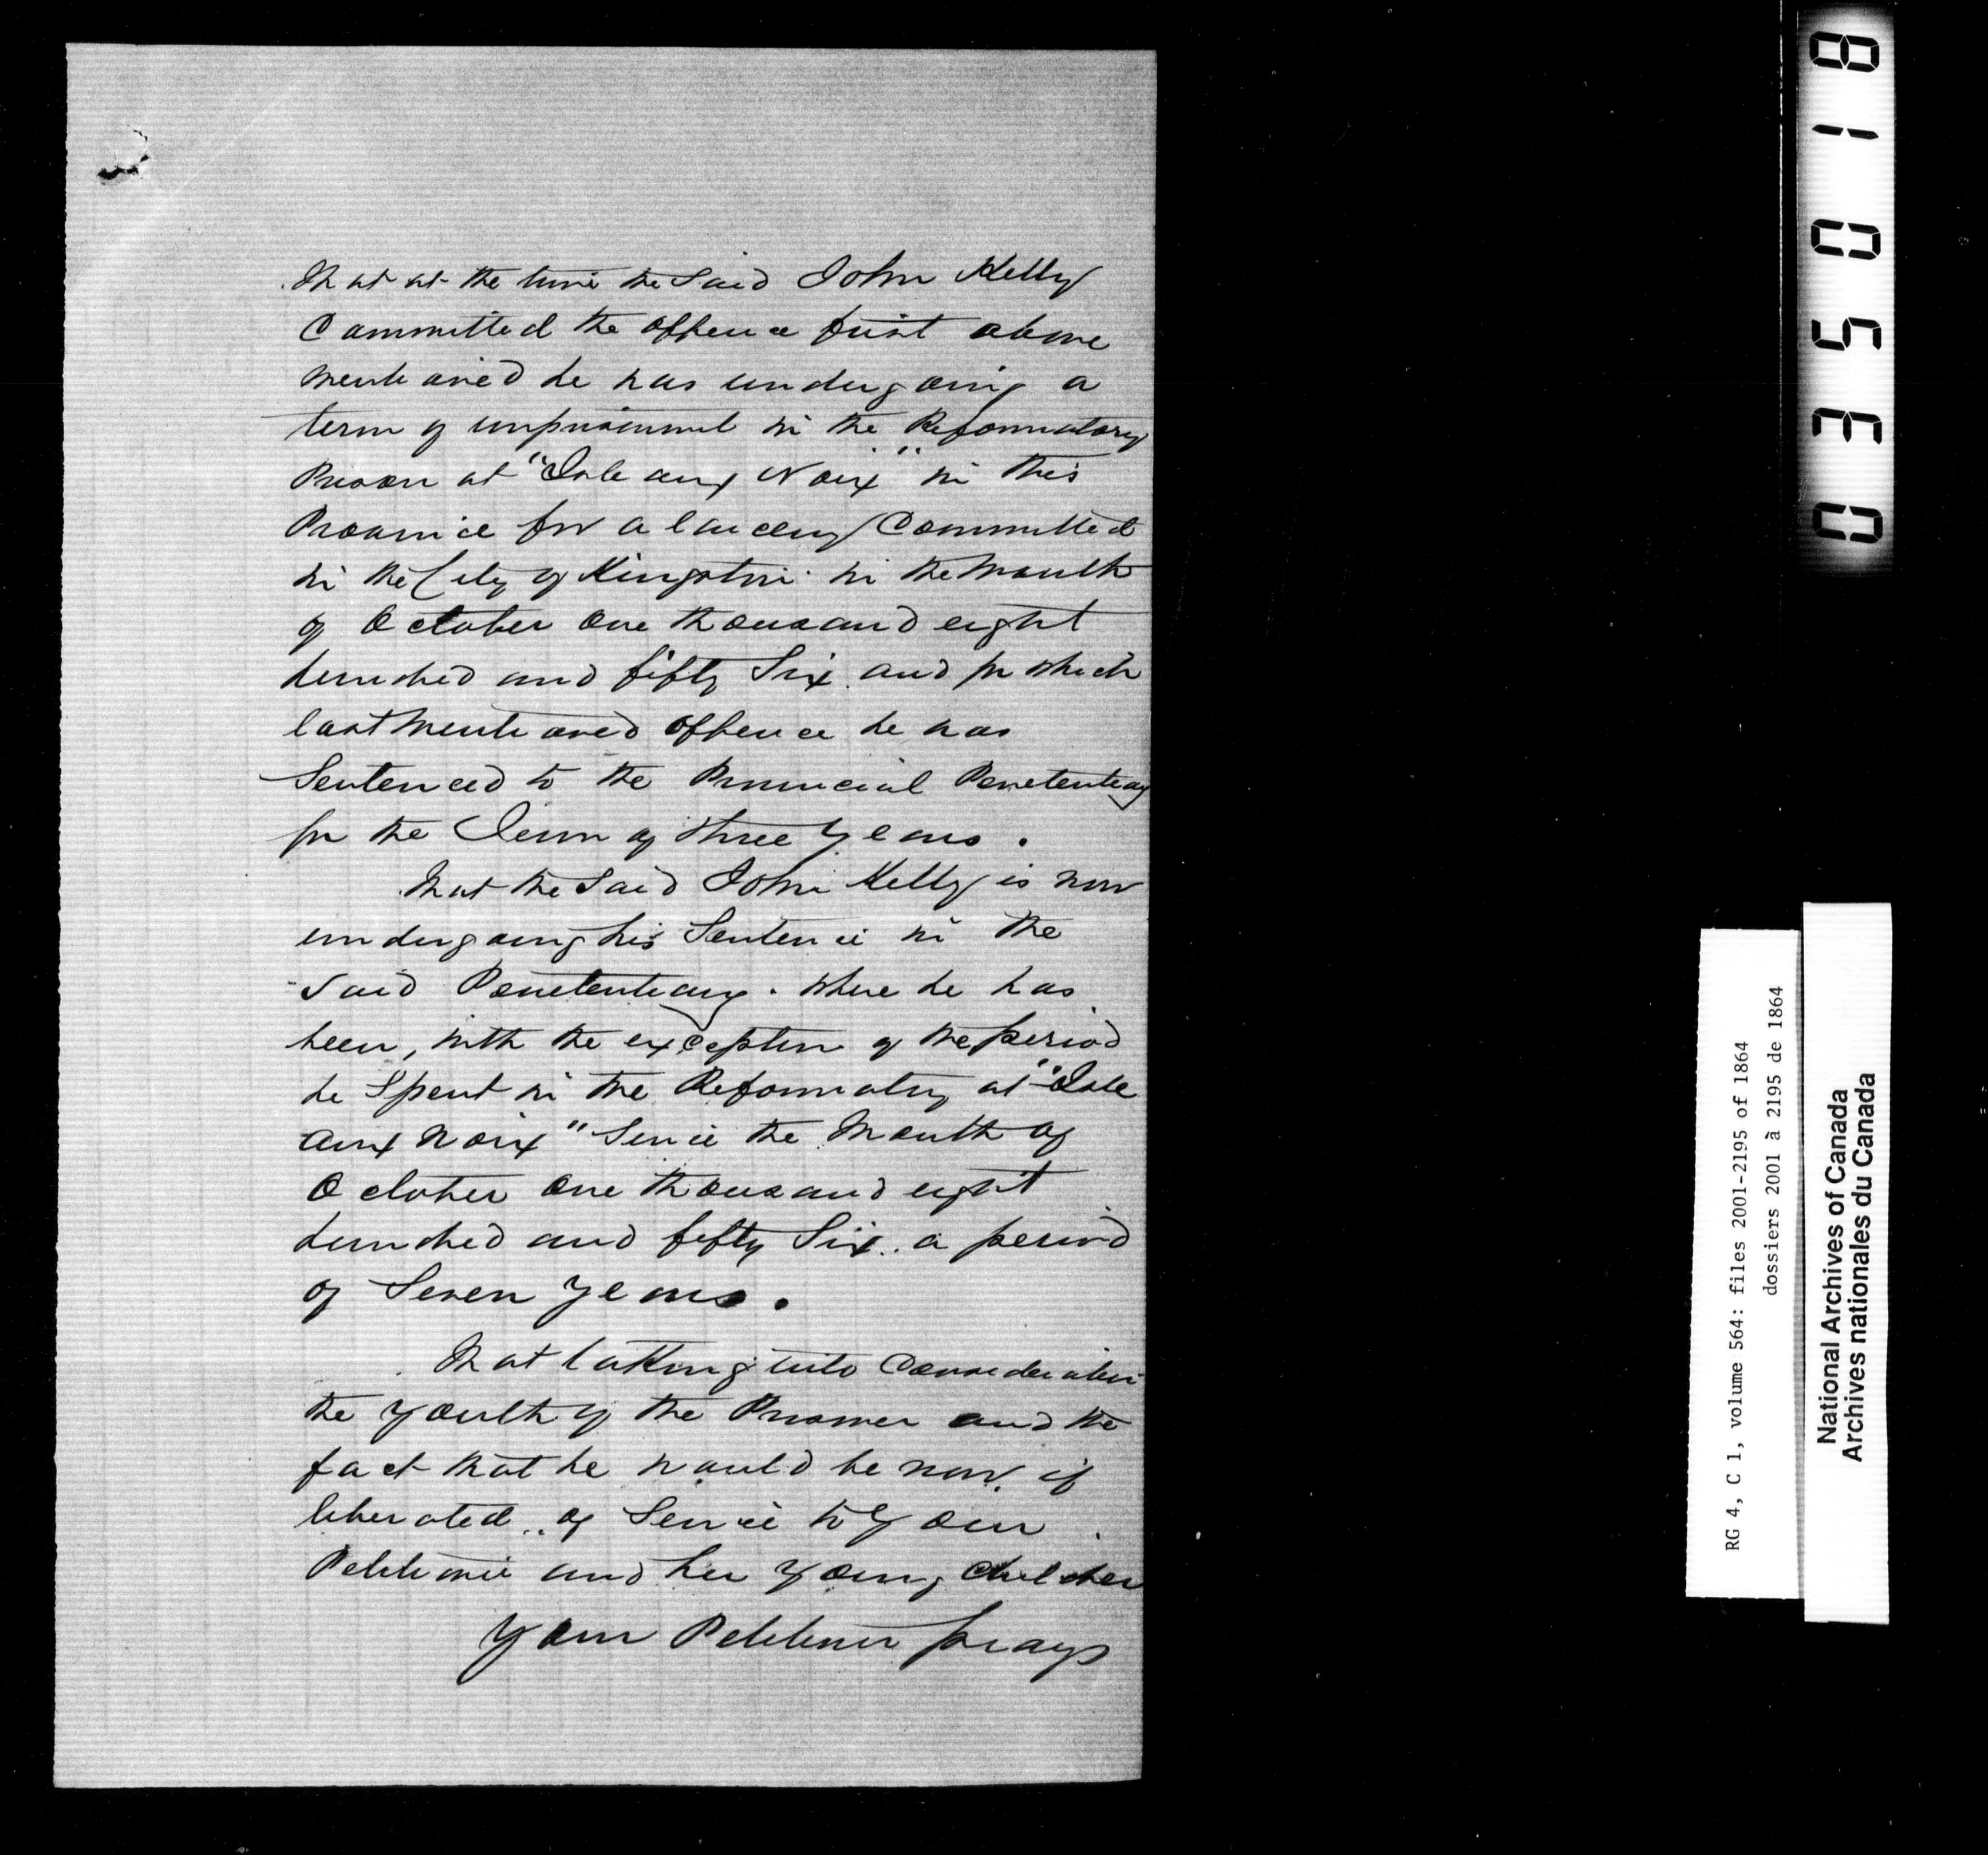 That at the time the Said John Kelly
Committed the offence first above
mentioned he was undergoing a
term of imprisonment in the Reformatory
Prison at "Isle aux Noix" in this
Province for a larceny Committed
in the City of Kingston in the Month
of October One thousand eight
hundred and fifty Six and for which
last mentioned offence he was
Sentenced to the Provincial Penetentiary
for the Term of three years.
That the Said John Kelly is now
undergoing his Sentence in the
Said Penetentiary. where he has
been, with the exception of the period
he Spent in the Reformatory at "Isle
aux Noix" Since the Month of
October One thousand eight
hundred and fifty Six.. a period
of Seven years.
That taking into Consideration
the youth of the Prisoner and the
fact that he would be now, if
liberated.. of Service to your
Petitioner and her young children
Your Petitioner prays
035018
RG 4, C 1, volume 564: files 2001-2195 of 1864
dossiers 2001 à 2195 de 1864
National Archives of Canada
Archives nationales du Canada